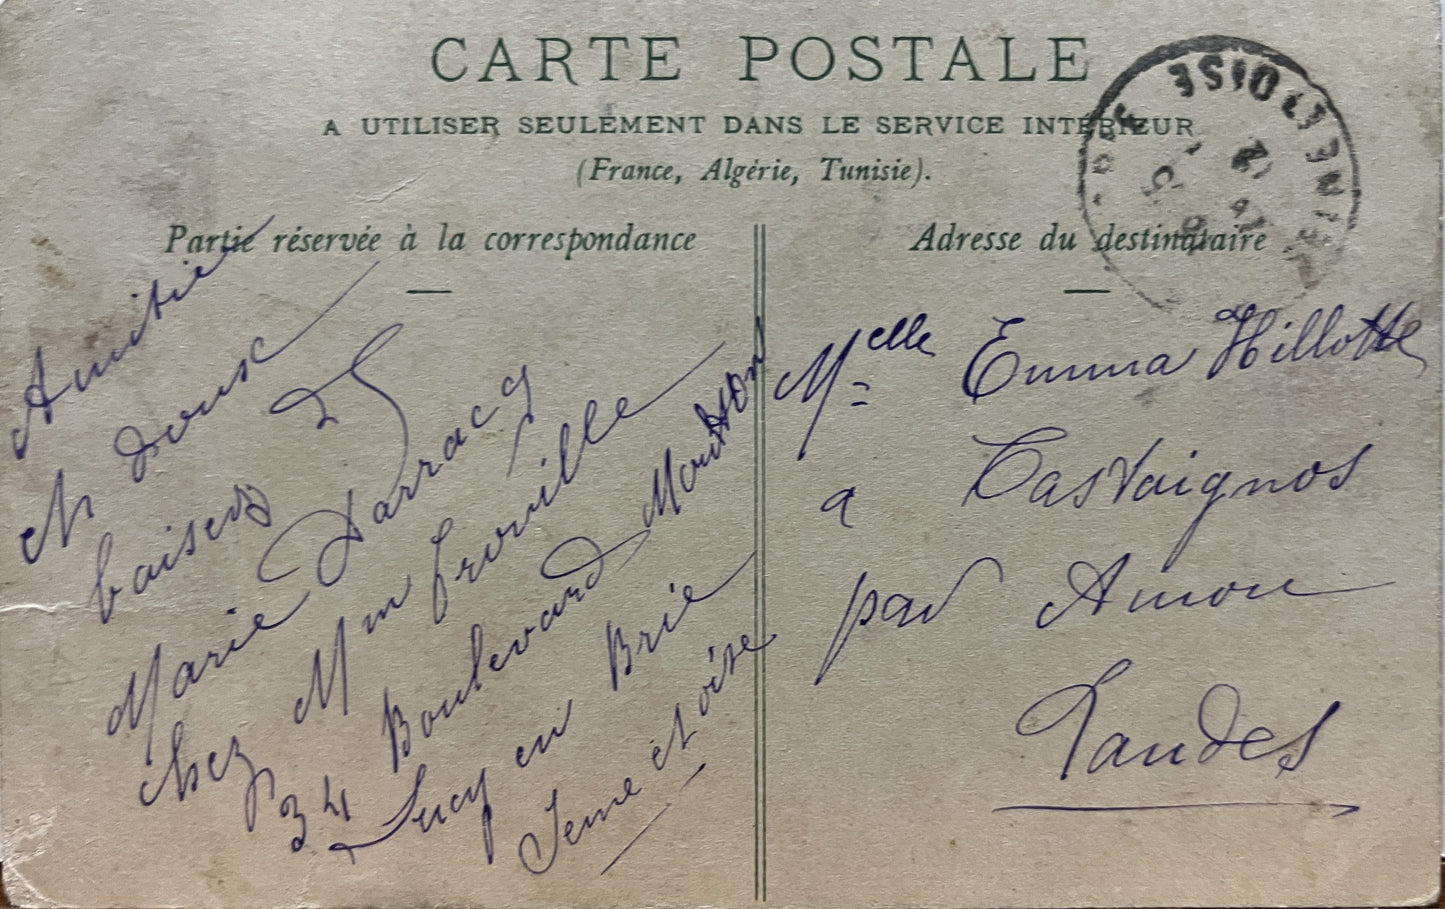 CARTE POSTALE
A UTILISER SEULEMENT DANS LE SERVICE INTÉRIEUR
(France, Algérie, Tunisie).
Partie réservée à la correspondance
Amitié
et doux
baisers
Marie Darracq
chez Mm Frouville
34 Boulevard Moutton
Sucy en Brie
Seine et oise
Adresse du destinataire
Melle Emma Hillotte
a Castaignos
par Amou
Landes
NE ET OISE